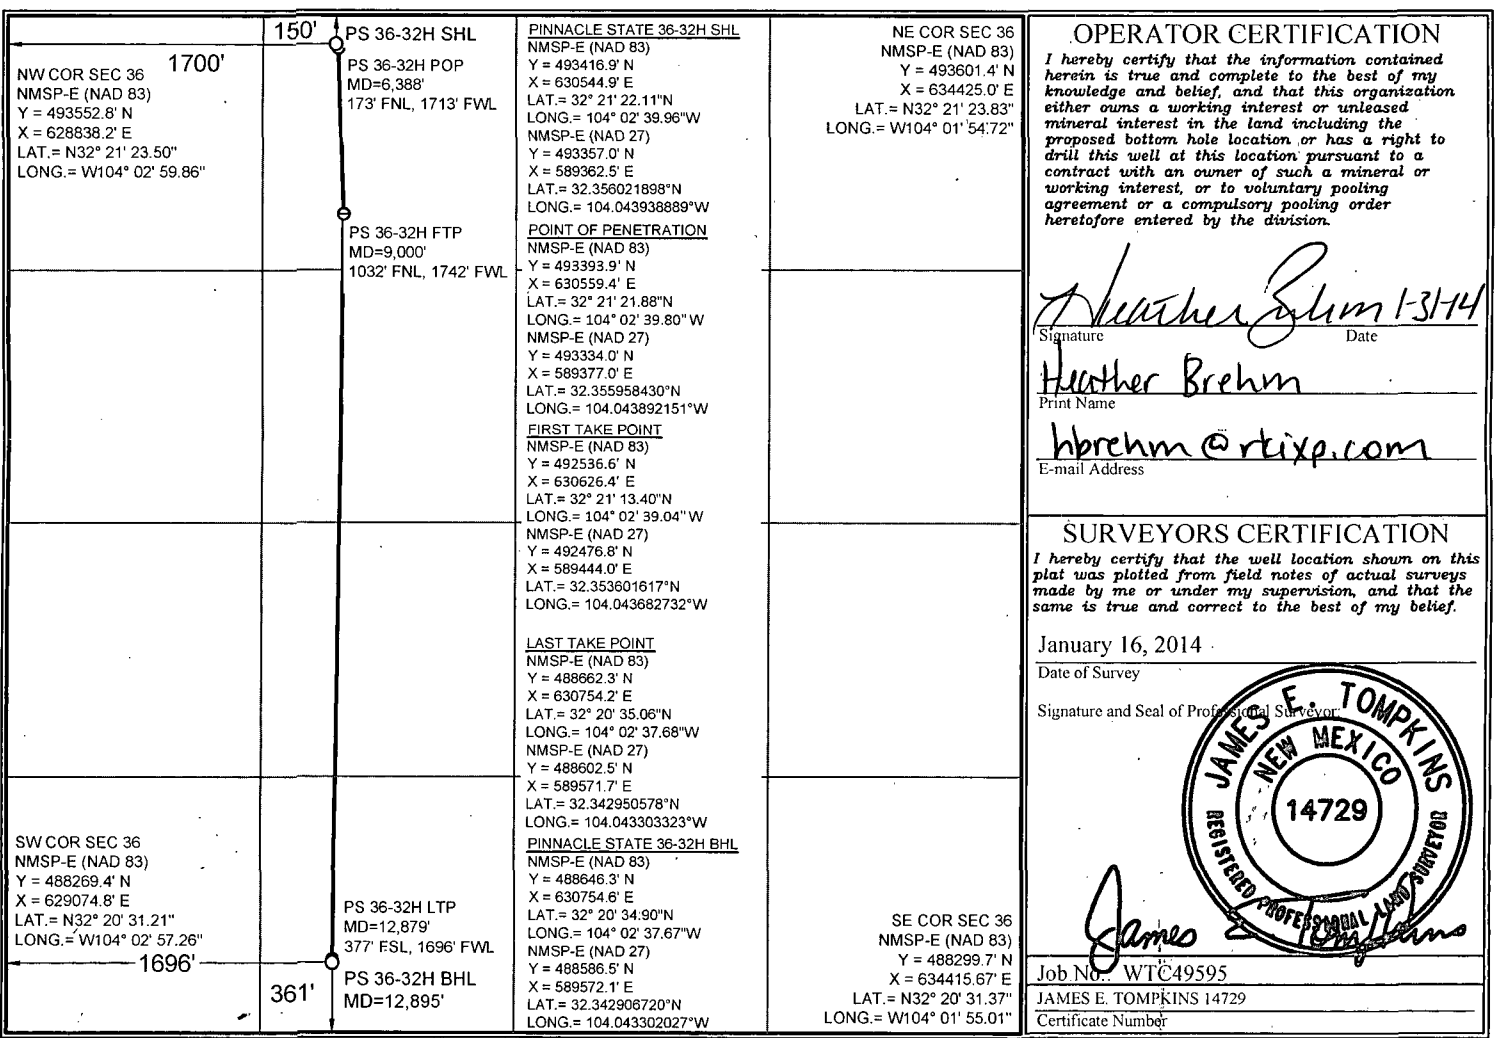 150'
PS 36-32H SHL
1700'
NW COR SEC 36
NMSP-E (NAD 83)
Y = 493552.8' N
X = 628838.2' E
LAT.= N32° 21' 23.50"
LONG.= W104° 02' 59.86"
PS 36-32H POP
MD=6,388'
173' FNL, 1713' FWL
PS 36-32H FTP
MD=9,000'
1032' FNL, 1742' FWL
SW COR SEC 36
NMSP-E (NAD 83)
Y = 488269.4' N
X = 629074.8' E
LAT.= N32° 20' 31.21"
LONG.= W104° 02' 57.26"
1696'
PS 36-32H LTP
MD=12,879'
377' FSL, 1696' FWL
361'
PS 36-32H BHL
MD=12,895'
PINNACLE STATE 36-32H SHL
NMSP-E (NAD 83)
Y = 493416.9' N
X = 630544.9' E
LAT.= 32° 21' 22.11"N
LONG.= 104° 02' 39.96"W
NMSP-E (NAD 27)
Y = 493357.0' N
X = 589362.5' E
LAT.= 32.356021898°N
LONG.= 104.043938889°W
POINT OF PENETRATION
NMSP-E (NAD 83)
Y = 493393.9' N
X = 630559.4' E
LAT.= 32° 21' 21.88"N
LONG.= 104° 02' 39.80"W
NMSP-E (NAD 27)
Y = 493334.0' N
X = 589377.0' E
LAT.= 32.355958430°N
LONG.= 104.043892151°W
FIRST TAKE POINT
NMSP-E (NAD 83)
Y = 492536.6' N
X = 630626.4' E
LAT.= 32° 21' 13.40"N
LONG.= 104° 02' 39.04"W
NMSP-E (NAD 27)
Y = 492476.8' N
X = 589444.0' E
LAT.= 32.353601617°N
LONG.= 104.043682732°W
LAST TAKE POINT
NMSP-E (NAD 83)
Y = 488662.3' N
X = 630754.2' E
LAT.= 32° 20' 35.06"N
LONG.= 104° 02' 37.68"W
NMSP-E (NAD 27)
Y = 488602.5' N
X = 589571.7' E
LAT.= 32.342950578°N
LONG.= 104.043303323°W
PINNACLE STATE 36-32H BHL
NMSP-E (NAD 83)
Y = 488646.3' N
X = 630754.6' E
LAT.= 32° 20' 34.90"N
LONG.= 104° 02' 37.67"W
NMSP-E (NAD 27)
Y = 488586.5' N
X = 589572.1' E
LAT.= 32.342906720°N
LONG.= 104.043302027°W
NE COR SEC 36
NMSP-E (NAD 83)
Y = 493601.4' N
X = 634425.0' E
LAT.= N32° 21' 23.83"
LONG.= W104° 01' 54.72"
SE COR SEC 36
NMSP-E (NAD 83)
Y = 488299.7' N
X = 634415.67' E
LAT.= N32° 20' 31.37"
LONG.= W104° 01' 55.01"
OPERATOR CERTIFICATION
I hereby certify that the information contained
herein is true and complete to the best of my
knowledge and belief, and that this organization
either owns a working interest or unleased
mineral interest in the land including the
proposed bottom hole location or has a right to
drill this well at this location pursuant to a
contract with an owner of such a mineral or
working interest, or to voluntary pooling
agreement or a compulsory pooling order
heretofore entered by the division.
Heather Brehm 1-31-14
Signature Date
Heather Brehm
Print Name
hbrehm@rkixp.com
E-mail Address
SURVEYORS CERTIFICATION
I hereby certify that the well location shown on this
plat was plotted from field notes of actual surveys
made by me or under my supervision, and that the
same is true and correct to the best of my belief.
January 16, 2014
Date of Survey
Signature and Seal of Professional Surveyor:
JAMES E. TOMPKINS
NEW MEXICO
14729
REGISTERED PROFESSIONAL LAND SURVEYOR
James E. Tompkins
Job No.: WTC49595
JAMES E. TOMPKINS 14729
Certificate Number